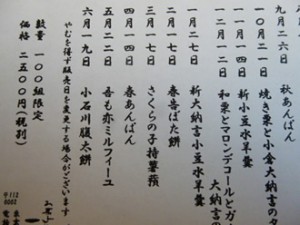 九月二六日　秋あんぱん
一〇月二一日　焼き栗と小倉大納言のタ
一一月九日　和栗とマロンデコールとガ
大納言の
一二月一九日　新小豆水羊羹
一月二七日　新大納言小豆水羊羹
二月一七日　春告ぼた餅
三月一七日　さくらの子持薯蕷
四月一七日　春あんぱん
五月一八日　吾も亦ミルフィーユ
六月一九日　小石川腹太餅
やむを得ず販売日を変更する場合がございます
数量　一〇〇組限定
価格　二五〇〇円(税別)
〒112
0002